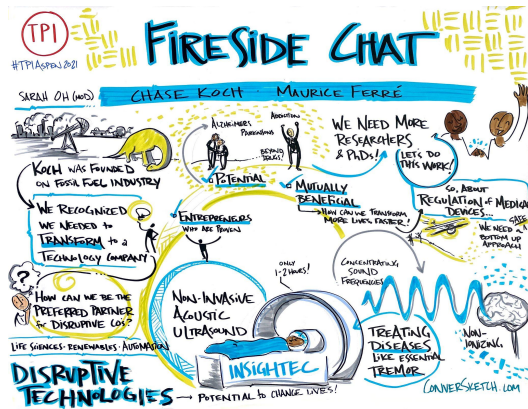 TPI
#TPIASPEN2021
FIRESIDE CHAT
SARAH OH (MOD)
CHASE KOCH · MAURICE FERRÉ
KOCH WAS FOUNDED
ON FOSSIL FUEL INDUSTRY
WE RECOGNIZED
WE NEEDED TO
TRANSFORM TO A
TECHNOLOGY COMPANY
?
HOW CAN WE BE THE
PREFERRED PARTNER
for DISRUPTIVE COs?
LIFE SCIENCES · RENEWABLES · AUTOMATION
DISRUPTIVE
TECHNOLOGIES → POTENTIAL TO CHANGE LIVES!
ALZHEIMERS
PARKINSONS
ADDICTION
BEYOND
DRUGS!
POTENTIAL
ENTREPRENEURS
WHO ARE PROVEN
MUTUALLY
BENEFICIAL
→ HOW CAN WE TRANSFORM
MORE LIVES, FASTER!
WE NEED MORE
RESEARCHERS
& PhDs!
LET'S DO
THIS WORK!
SO, ABOUT
REGULATION of MEDICAL
DEVICES...
WE NEED A
BOTTOM UP
APPROACH
NON-INVASIVE
ACOUSTIC
ULTRASOUND
ONLY
1-2 HOURS!
INSIGHTEC
CONCENTRATING
SOUND
FREQUENCIES
TREATING
DISEASES
LIKE ESSENTIAL
TREMOR
NON-
IONIZING
CONVERSKETCH.COM